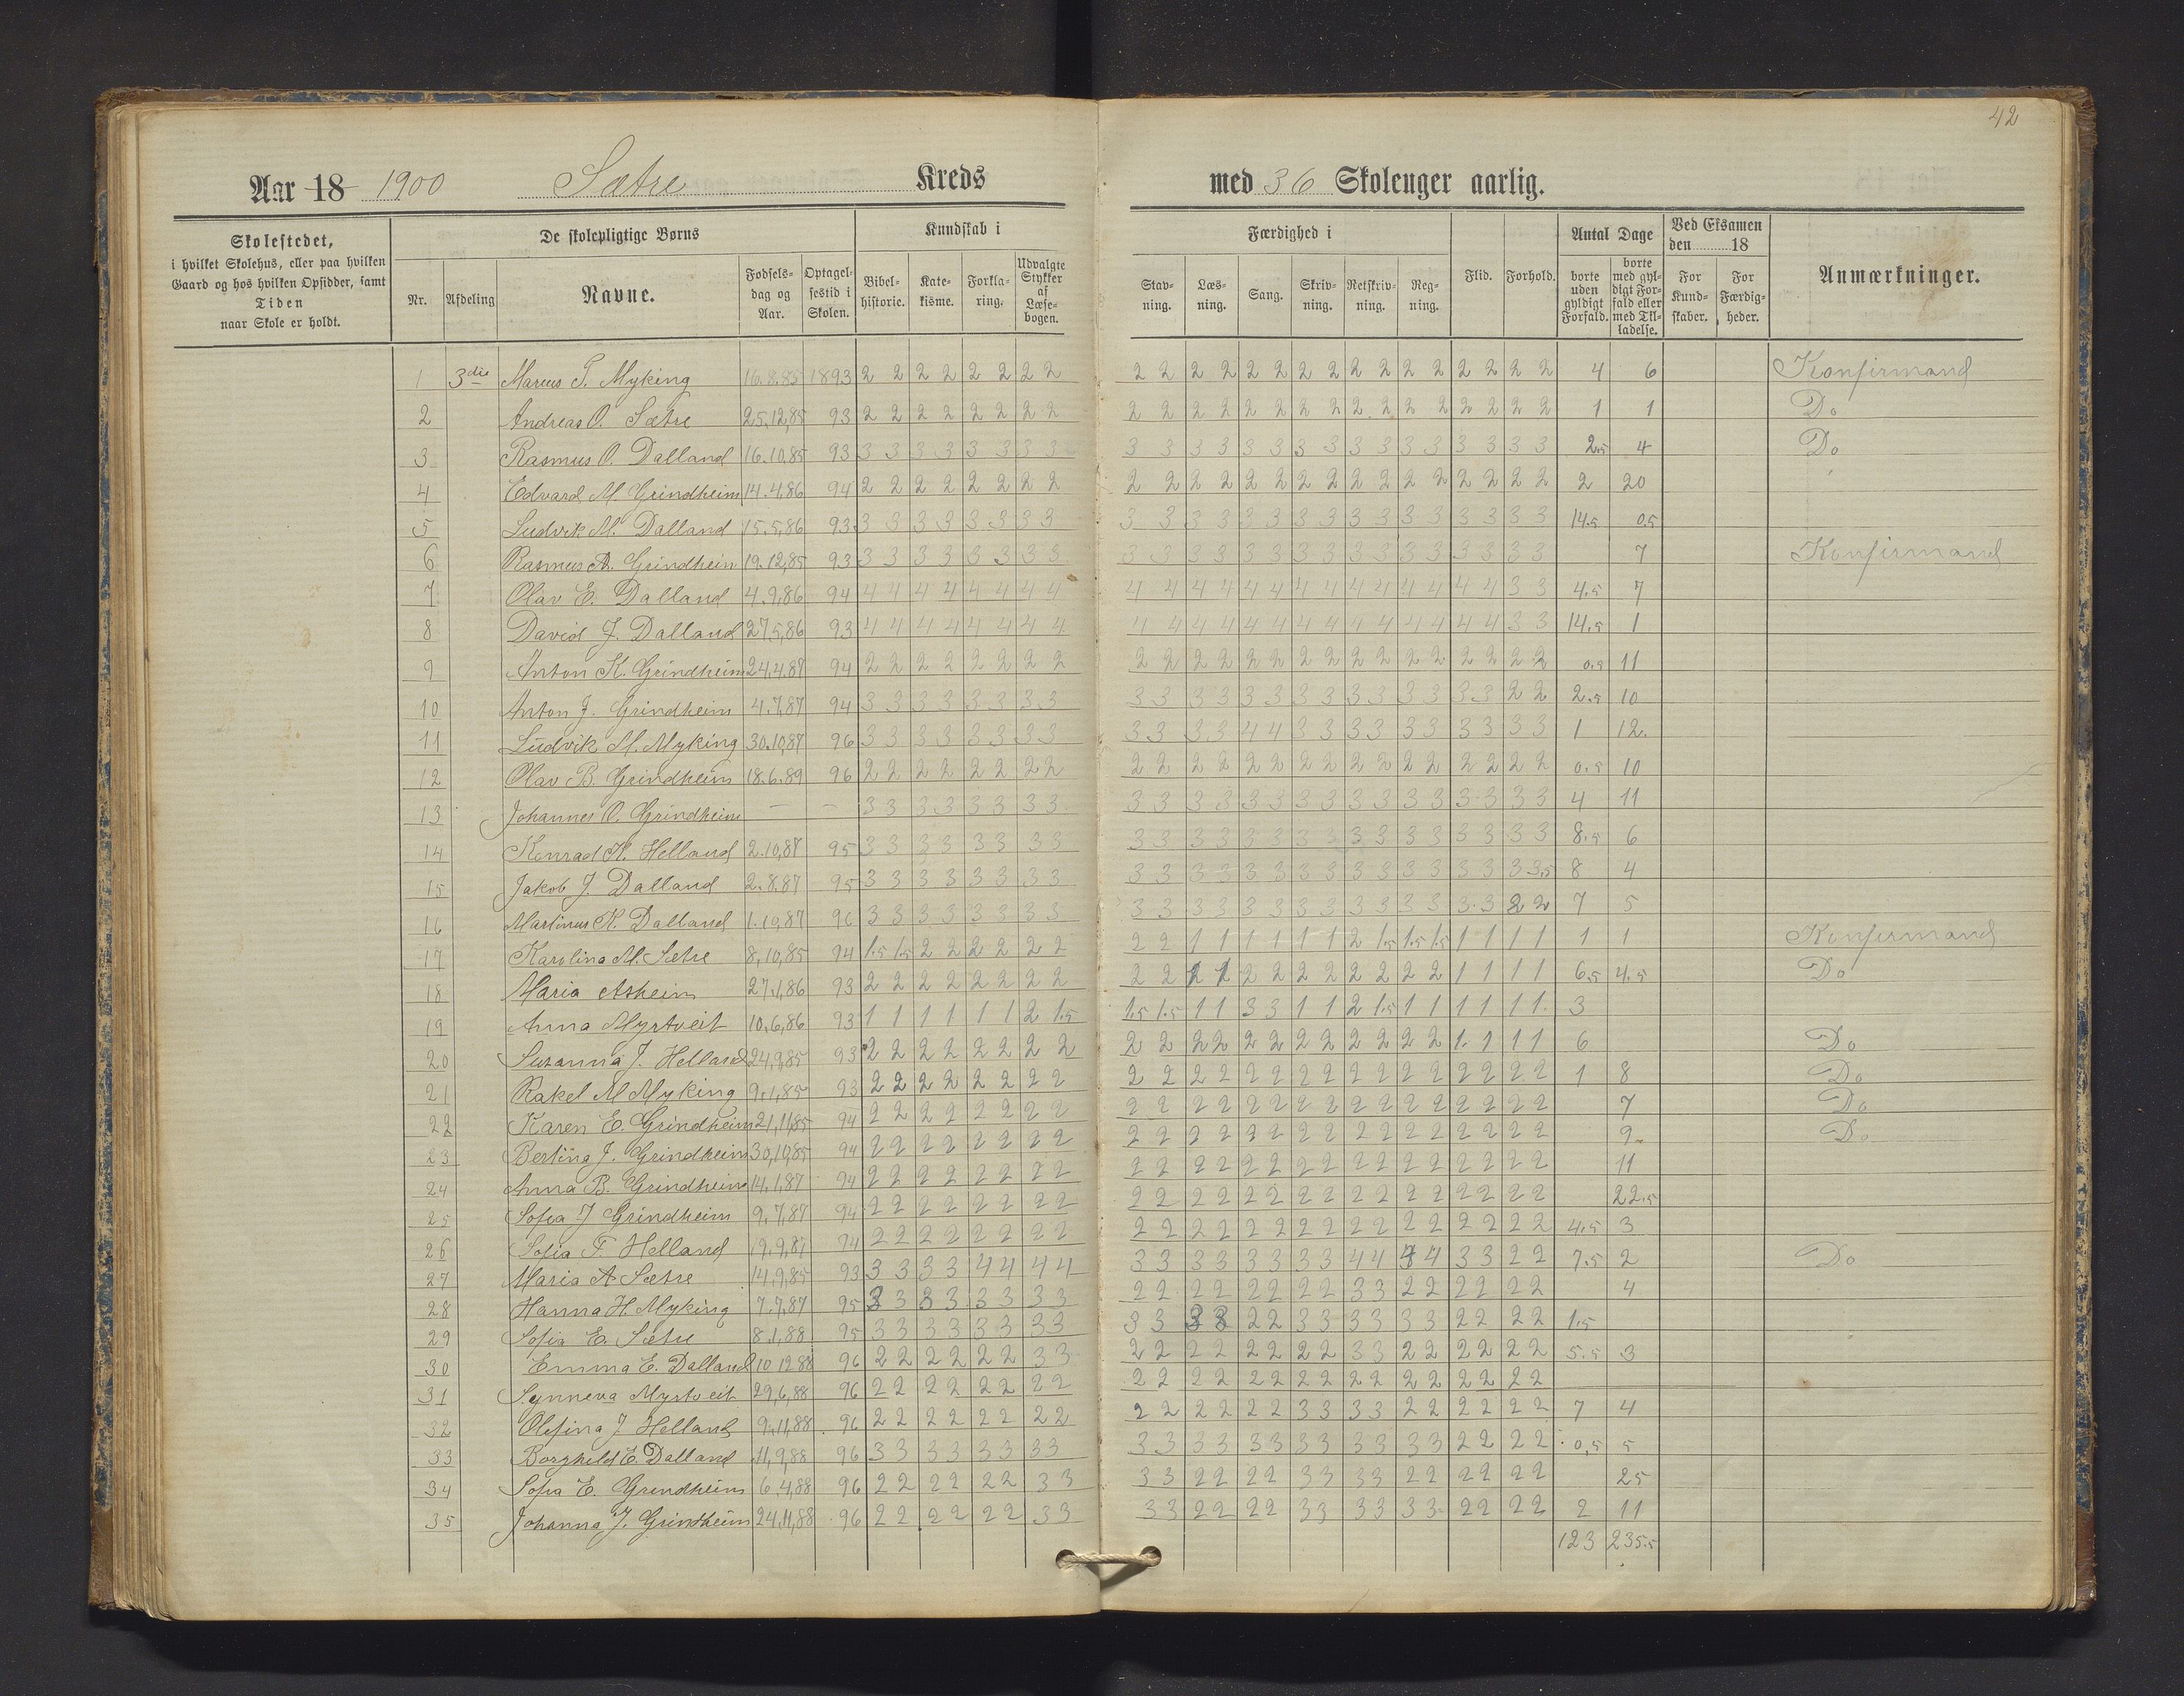 42
Aar 18 1900 Sætre Kreds med 36 Skoleuger aarlig.
Skolestedet, i hvilket Skolehus, eller paa hvilken Gaard og hos hvilken Opsidder, samt Tiden naar Skole er holdt.
De skolepligtige Børns
Nr. Afdeling Navne. Fødselsdag og Aar. Optagelsestid i Skolen.
Kundskab i
Bibelhistorie. Katekisme. Forklaring. Udvalgte Stykker af Læsebogen.
Færdighed i
Stavning. Læsning. Sang. Skrivning. Retskrivning. Regning. Flid. Forhold.
Antal Dage
borte uden gyldigt Forfald. borte med gyldigt Forfald eller med Tilladelse.
Ved Eksamen den 18
For Kundskaber. For Færdigheder.
Anmærkninger.
1 3die Marius T. Myking 16.8.85 1893 2 2 2 2 2 2 2 2 2 2 2 2 2 2 2 2 2 2 2 2 2 2 2 2 4 6 Konfirmand
2 Andreas O. Sætre 25.12,85 93 2 2 2 2 2 2 2 2 2 2 2 2 2 2 2 2 2 2 2 2 2 2 2 2 1 1 Do
3 Rasmus O. Dalland 16.10.85 93 3 3 3 3 3 3 3 3 3 3 3 3 3 3 3 3 3 3 3 3 3 3 3 3 2.5 4 Do
4 Edvard M. Grindheim 14.4.86 94 2 2 2 2 2 2 2 2 2 2 2 2 2 2 2 2 2 2 2 2 2 2 2 2 2 20
5 Ludvik M. Dalland 15.5,86 93 3 3 3 3 3 3 3 3 3 3 3 3 3 3 3 3 3 3 3 3 3 3 3 3 14.5 0.5
6 Rasmus A. Grindheim 19.12,85 93 3 3 3 3 3 3 3 3 3 3 3 3 3 3 3 3 3 3 3 3 3 3 3 3 7 Konfirmand
7 Olav E. Dalland 4.9,86 94 4 4 4 4 4 4 4 4 4 4 4 4 4 4 4 4 4 4 4 4 4 4 3 3 4.5 7
8 David J. Dalland 27,5,86 93 4 4 4 4 4 4 4 4 4 4 4 4 4 4 4 4 4 4 4 4 4 4 3 3 14.5 1
9 Anton K. Grindheim 24.4.87 94 2 2 2 2 2 2 2 2 2 2 2 2 2 2 2 2 2 2 2 2 2 2 2 2 11
10 Anton J. Grindheim 4.7,87 94 3 3 3 3 3 3 3 3 3 3 3 3 3 3 3 3 3 3 3 3 3 3 2 2 2.5 10
11 Ludvik M. Myking 30.10,87 96 3 3 3 3 3 3 3 3 3 3 3 3 4 4 3 3 3 3 3 3 3 3 3 3 1 12.
12 Olav B. Grindheim 18.6.89 96 2 2 2 2 2 2 2 2 2 2 2 2 2 2 2 2 2 2 2 2 2 2 2 2 0.5 10
13 Johannes O. Grindheim — — 3 3 3 3 3 3 3 3 3 3 3 3 3 3 3 3 3 3 3 3 3 3 3 3 4 11
14 Konrad K. Helland 2.10,87 95 3 3 3 3 3 3 3 3 3 3 3 3 3 3 3 3 3 3 3 3 3 3 3 3 8.5 6
15 Jakob J. Dalland 2.8.87 95 3 3 3 3 3 3 3 3 3 3 3 3 3 3 3 3 3 3 3 3 3 3 3 3,5 8 4
16 Martinus K. Dalland 1.10,87 96 3 3 3 3 3 3 3 3 3 3 3 3 3 3 3 3 3 3 3 3 3 3 2 2 7 5
17 Karolina M. Sætre 8,10,85 94 1.5 1.5 2 2 2 2 2 2 2 2 1 1 1 1 1 1 2 1.5 1.5 1.5 1 1 1 1 1 1 Konfirmand
18 Maria Asheim 27,1,86 93 2 2 2 2 2 2 2 2 2 2 2 2 2 2 2 2 2 2 2 1 1 1 1 6.5 4.5 Do
19 Anna Myrtveit 10,6,86 93 1 1 1 1 1 1 2 1.5 1.5 1.5 1 1 3 3 1 1 2 1.5 1 1 1 1 1 1. 3
20 Suzanna J. Helland 24,9,85 93 2 2 2 2 2 2 2 2 2 2 2 2 2 2 2 2 2 2 2 2 1. 1 1 1 6 Do
21 Rakel M Myking 9.1,85 93 2 2 2 2 2 2 2 2 2 2 2 2 2 2 2 2 2 2 2 2 2 2 2 2 1 8 Do
22 Karen E. Grindheim 21,11,85 94 2 2 2 2 2 2 2 2 2 2 2 2 2 2 2 2 2 2 2 2 2 2 2 2 7 Do
23 Bertina J. Grindheim 30,10,85 94 2 2 2 2 2 2 2 2 2 2 2 2 2 2 2 2 2 2 2 2 2 2 2 2 9 Do
24 Anna B. Grindheim 14.1,87 94 2 2 2 2 2 2 2 2 2 2 2 2 2 2 2 2 2 2 2 2 2 2 2 2 11
25 Sofia J Grindheim 9.7,87 94 2 2 2 2 2 2 2 2 2 2 2 2 2 2 2 2 2 2 2 2 2 2 2 2 22.5
26 Sofia F. Helland 19.9,87 94 2 2 2 2 2 2 2 2 2 2 2 2 2 2 2 2 2 2 2 2 2 2 2 2 4.5 3
27 Maria A Sætre 14,9,85 93 3 3 3 3 4 4 4 4 3 3 3 3 3 3 3 3 4 4 4 4 3 3 2 2 7.5 2 Do
28 Hanna H. Myking 7.7.87 95 3 3 3 3 3 3 3 3 2 2 2 2 2 2 2 2 3 3 2 2 2 2 2 2 4
29 Sofia E. Sætre 8.1,88 95 3 3 3 3 3 3 3 3 3 3 3 3 2 2 3 3 3 3 3 3 2 2 2 2 1.5
30 Emma E. Dalland 10 12 88 96 2 2 2 2 2 2 3 3 2 2 2 2 2 2 2 2 3 3 2 2 2 2 2 2 5.5 3
31 Synneva Myrtveit 29,6,88 96 2 2 2 2 2 2 2 2 2 2 2 2 2 2 2 2 2 2 2 2 2 2 2 2
32 Olefina J. Helland 9,11,88 96 2 2 2 2 2 2 2 2 2 2 2 2 2 2 3 3 3 3 2 2 2 2 2 2 7 4
33 Borghild E. Dalland 11,9,88 96 3 3 3 3 3 3 3 3 3 3 3 3 3 3 3 3 3 3 3 3 2 2 2 2 0,5 5
34 Sofia E. Grindheim 6.4,88 96 2 2 2 2 2 2 3 3 3 3 2 2 2 2 3 3 3 3 2 2 2 2 2 2 25
35 Johanna J. Grindheim 24,11,88 96 2 2 2 2 2 2 3 3 3 3 2 2 2 2 3 3 3 3 3 3 2 2 2 2 2 11
123 235.5